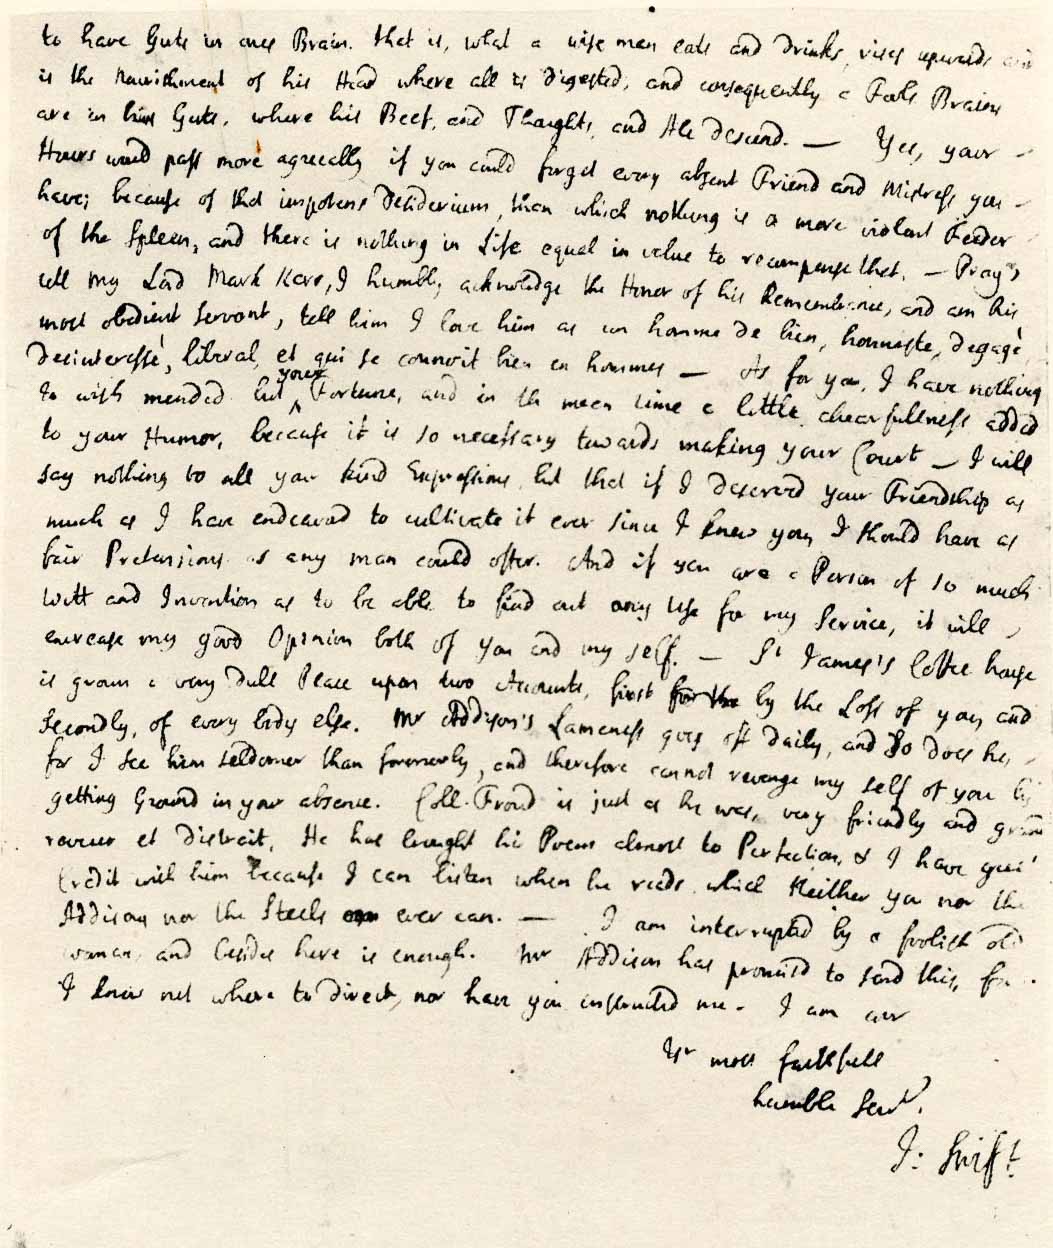 to have Guts in ones Brain. that is, what a wise man eats and drinks, rises upwards and
is the nourishment of his Head where all is digested, and consequently a Fools Brains
are in his Guts, where his Beef, and Thoughts, and Ale descend. — Yes, your
Hours would pass more agreeably if you could forget every absent Friend and Mistress you
have; because of that impotens desiderium, than which nothing is a more violent Feeder
of the Spleen, and there is nothing in Life equal in value to recompense that. — Pray,
tell my Lord Mark Kerr, I humbly acknoledge the Honor of his Remembrance, and am his
most obedient Servant, tell him I love him as un homme de bien, honneste, degagè,
desinteressè, liberal, et qui se connoit bien en hommes — As for you, I have nothing
to wish mended but your Fortune, and in the mean time a little chearfullness added
to your Humor, because it is so necessary towards making your Court — I will
say nothing to all your kind Expressions, but that if I deserved your Friendship as
much as I have endeavored to cultivate it ever since I knew you, I should have as
fair Pretensions as any man could offer. And if you are a Person of so much
Witt and Invention as to be able to find out any Use for my Service, it will
encrease my good Opinion both of you and my self. — St James's Coffee house
is grown a very dull Place upon two Accounts, first by the Loss of you, and
secondly, of every body else. Mr Addison's Lameness goes off daily, and so does he,
for I see him seldomer than formerly, and therefore cannot revenge my self of you by
getting Ground in your absence. Coll. Froud is just as he was, very friendly and grand
reveur et distrait, He has brought his Poems almost to Perfection, & I have great
Credit with him because I can listen when he reads, which Neither you nor the
Addisons nor the Steels ever can. — I am interrupted by a foolish old
woman, and besides here is enough. Mr Addison has promised to send this, for
I know not where to direct, nor have you instructed me. I am ever
Yr most faithfull
humble Servt.
J: Swift.